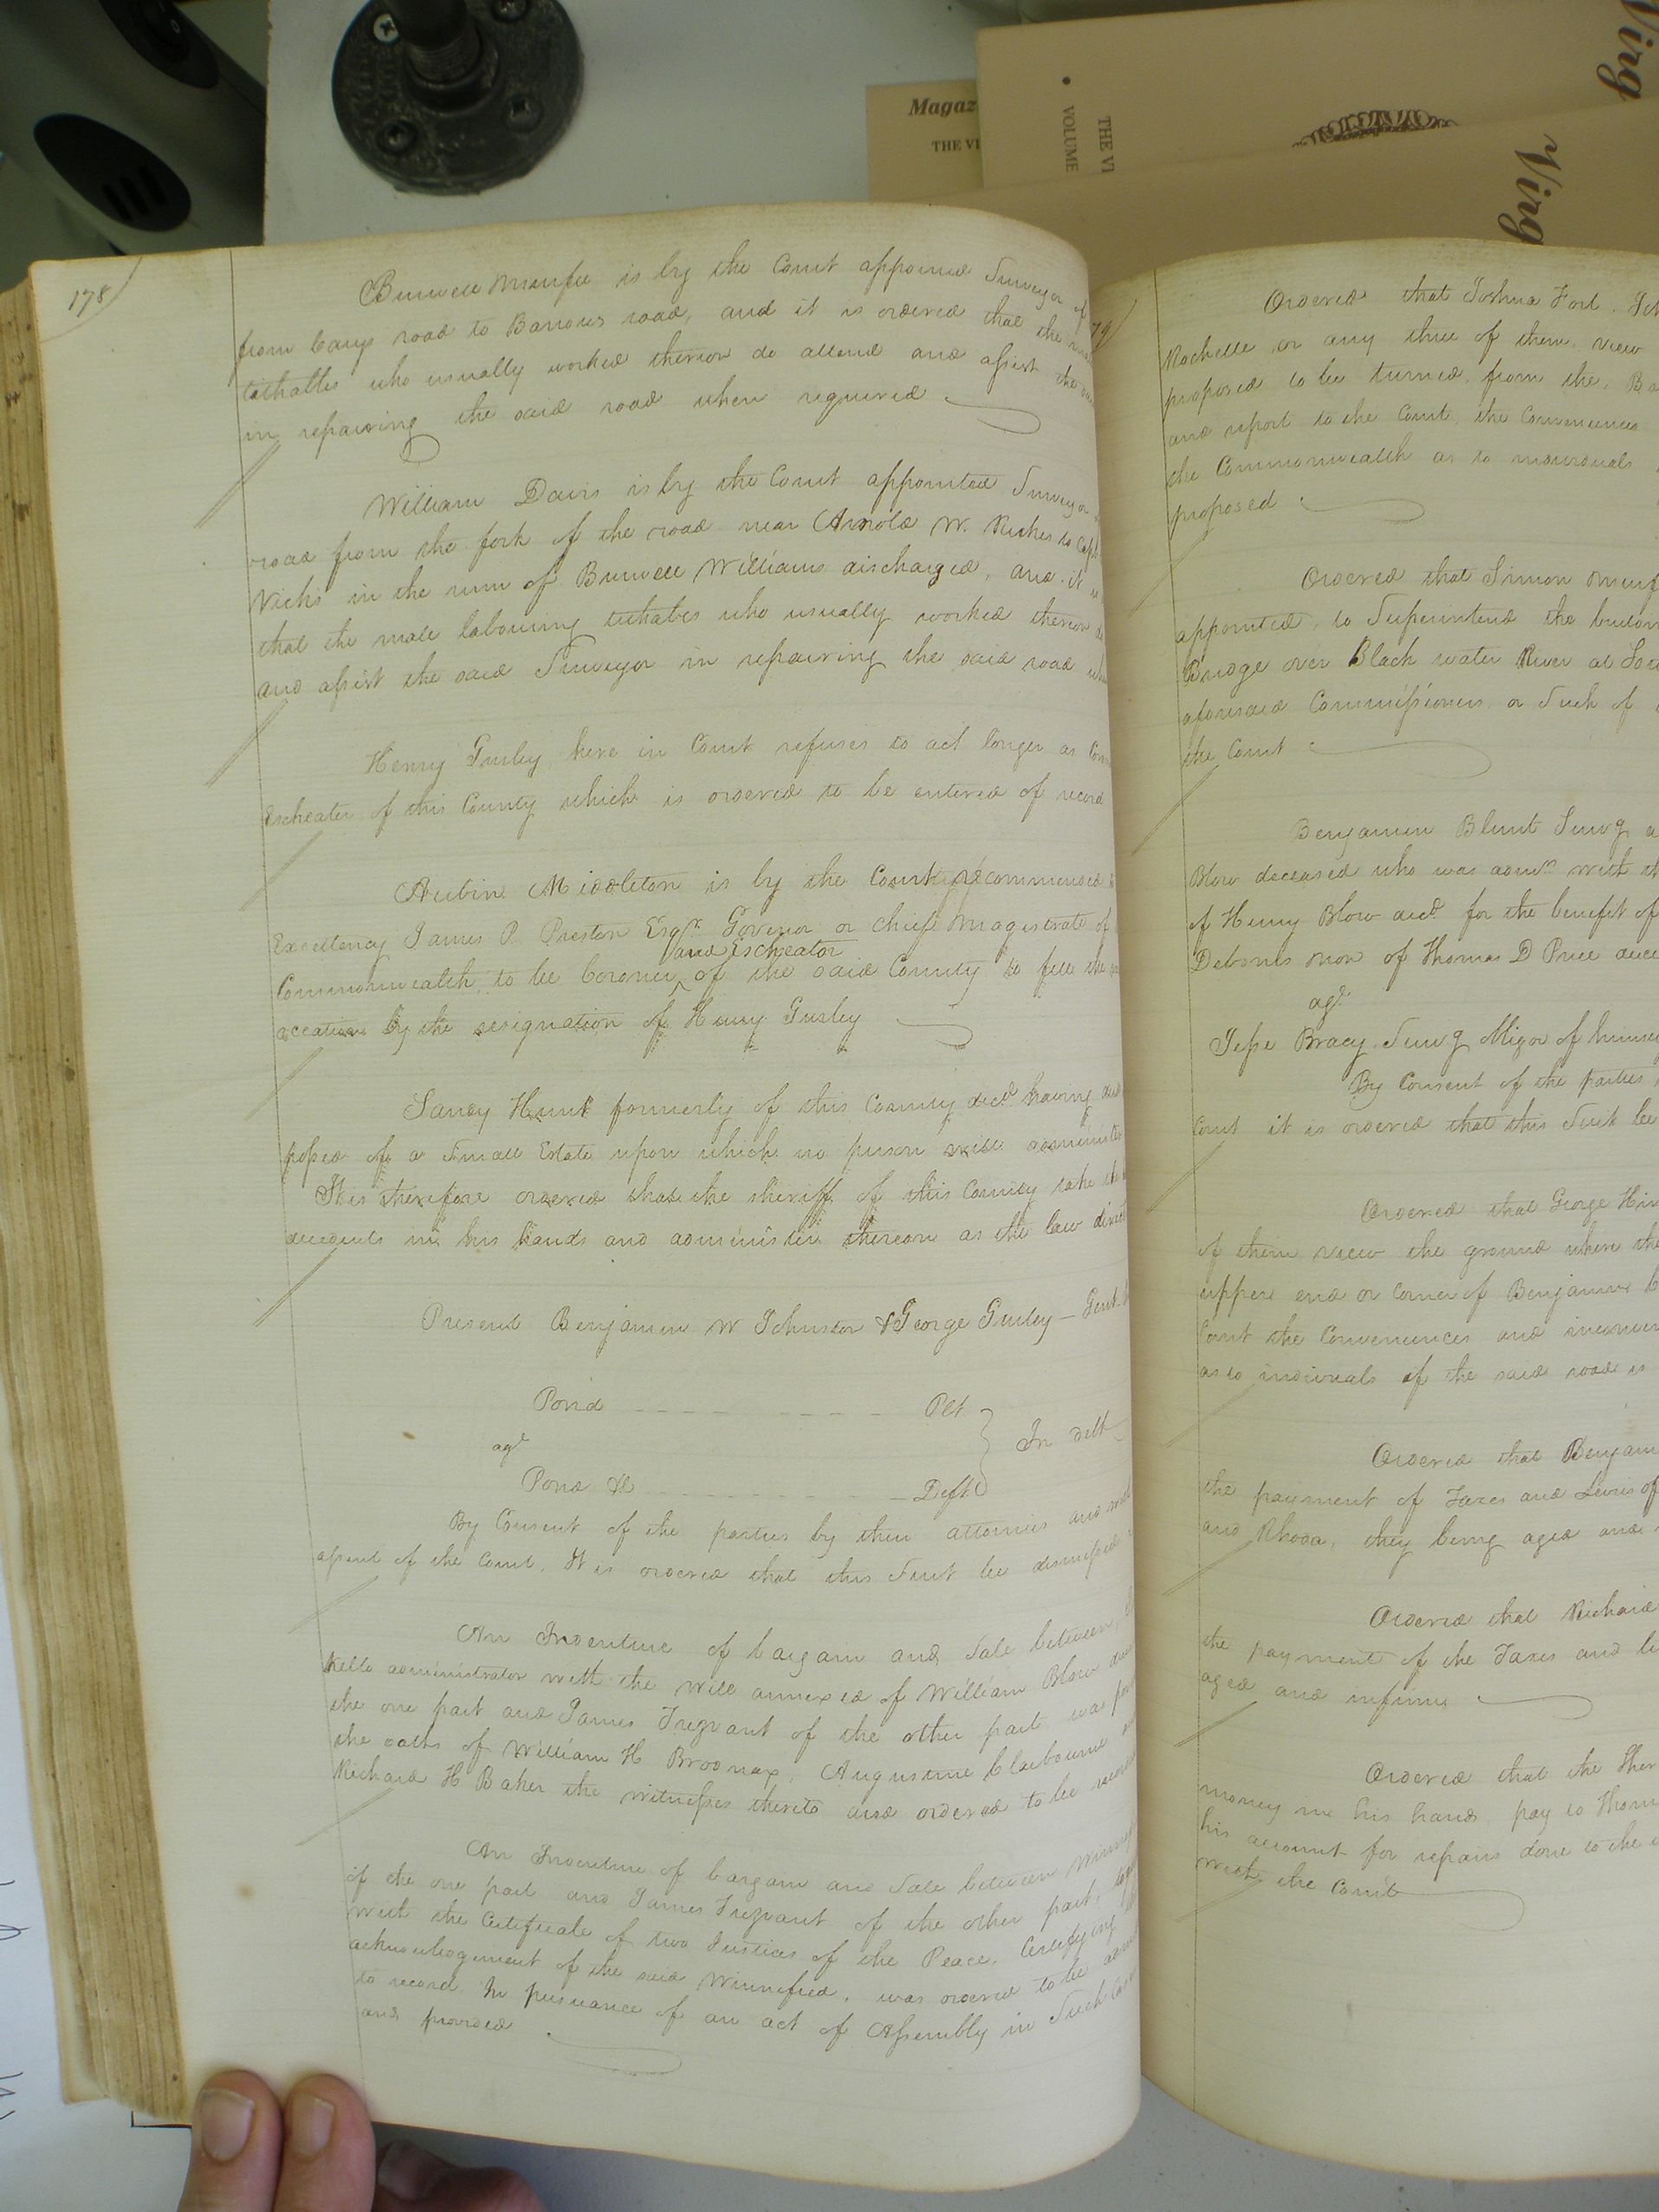 Magaz
THE VI
THE VI
VOLUME
Virg
Virg
178
Burwell Murfee is by the Court appointed Surveyor of
from Carys road to Barrows road, and it is ordered that the
tithables who usually worked thereon do attend and assist the
in repairing the said road when required
William Davis is by the Court appointed Surveyor
road from the fork of the road near Arnold W. Rickes to Capt
Vicks in the rum of Burwell Williams discharged, and it is
that the male labouring tithables who usually worked thereon do
and assist the said Surveyor in repairing the said road
Henry Gurley here in Court refuses to act longer as
Escheator of this County which is ordered to be entered of record
Aubin Middleton is by the Court recommended
Excellency James P. Preston Esqr. Govenor or chief Magistrate of
and Escheator
Commonwealth, to be Coroner of the said County to fill the
accation by the resignation of Henry Gurley
Hunt formerly of this County decd. having
possed of a small Estate upon which no person will administer
It is therefore ordered that the sheriff of this County take the
decedents in his hands and administer thereon as the law direct
Present Benjamin W Johnston & George Gurley — Gent
Pond Plt
agt In debt
Pond &c Deft
By Consent of the parties by their attornies and with
assent of the Court, It is ordered that this Suit be dismissed
An Indenture of bargain and Sale between
Kello administrator with the will annexed of William Blow
the one part and James Trezvant of the other part was
the oaths of William H Brodnax, Augustine Claibourne
Richard H Baker the witnesses thereto and ordered to be
An Indenture of bargain and Sale between
of the one part and James Trezvant of the other part,
with the Certificate of two Justices of the Peace. Certifying
acknowledgement of the said Winnefred, was ordered to be
to record In pursuance of an act of Assembly in Such Case
and provided
79
Ordered that Joshua Fort
Rochelle or any three of them view
proposed to be turned from the
and report to the Court, the Conveniences
the Commonwealth as to indivduals
proposed
Ordered that Simon Murf
appointed, to Superintend the
Bridge over Black water River at
aforesaid Commissioners or Such of
the Court
Benjamin Blunt Survg
Blow deceased who was admr. with
of Henry Blow decd for the benefit of
Debonis non of Thomas D Price
agt
Jesse Bracy Survg Oligor of
By Consent of the parties
Court it is ordered that this Suit be
Ordered that George
of them view the ground where the
upper end or Corner of Benjamin
Court the Conveniences and
as to indivuals of the said road is
Ordered that Benjam
the payment of Taxes and Levies of
and Rhoda, they being aged and
Ordered that Richard
the payment of the Taxes and
aged and infirm
Ordered that the
money in his hands pay to Thom
his account for repairs done to the
with the Court